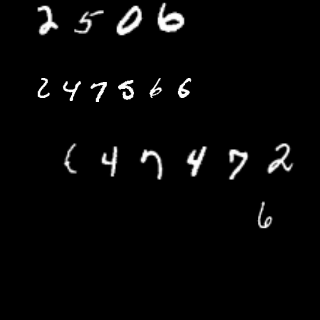 2506
247566
(47472
6